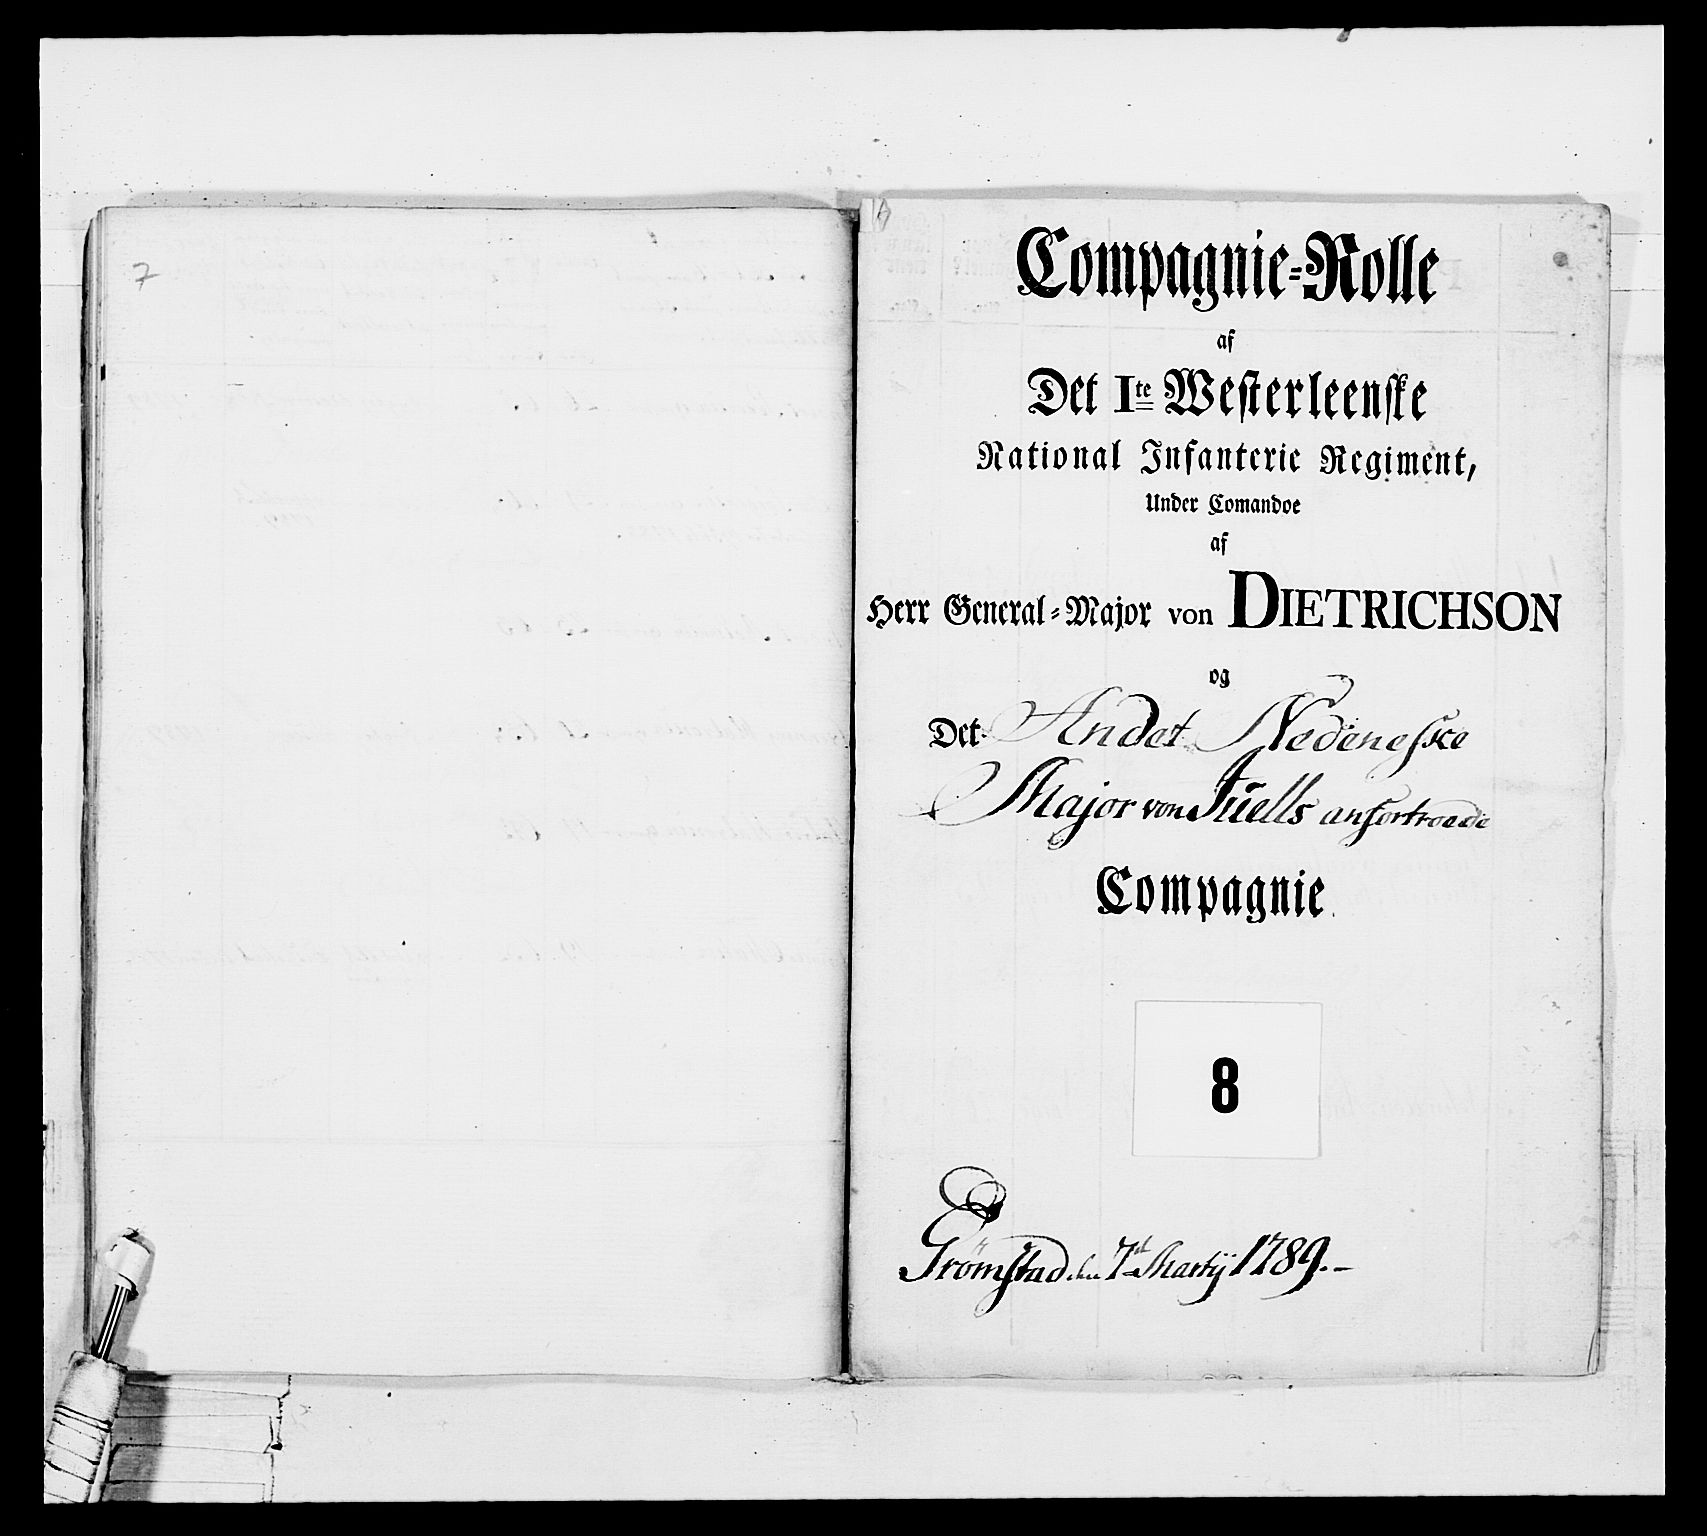 7
Compagnie=Rolle
af
Det 1te Westerleenske
National Infanterie Regiment,
Under Comandoe
af
Herr General=Major von DIETRICHSON
og
Det Andet Nedenesske
Major von Juells anfortroede
Compagnie
8
Grømstad den 7de Martÿ 1789.-